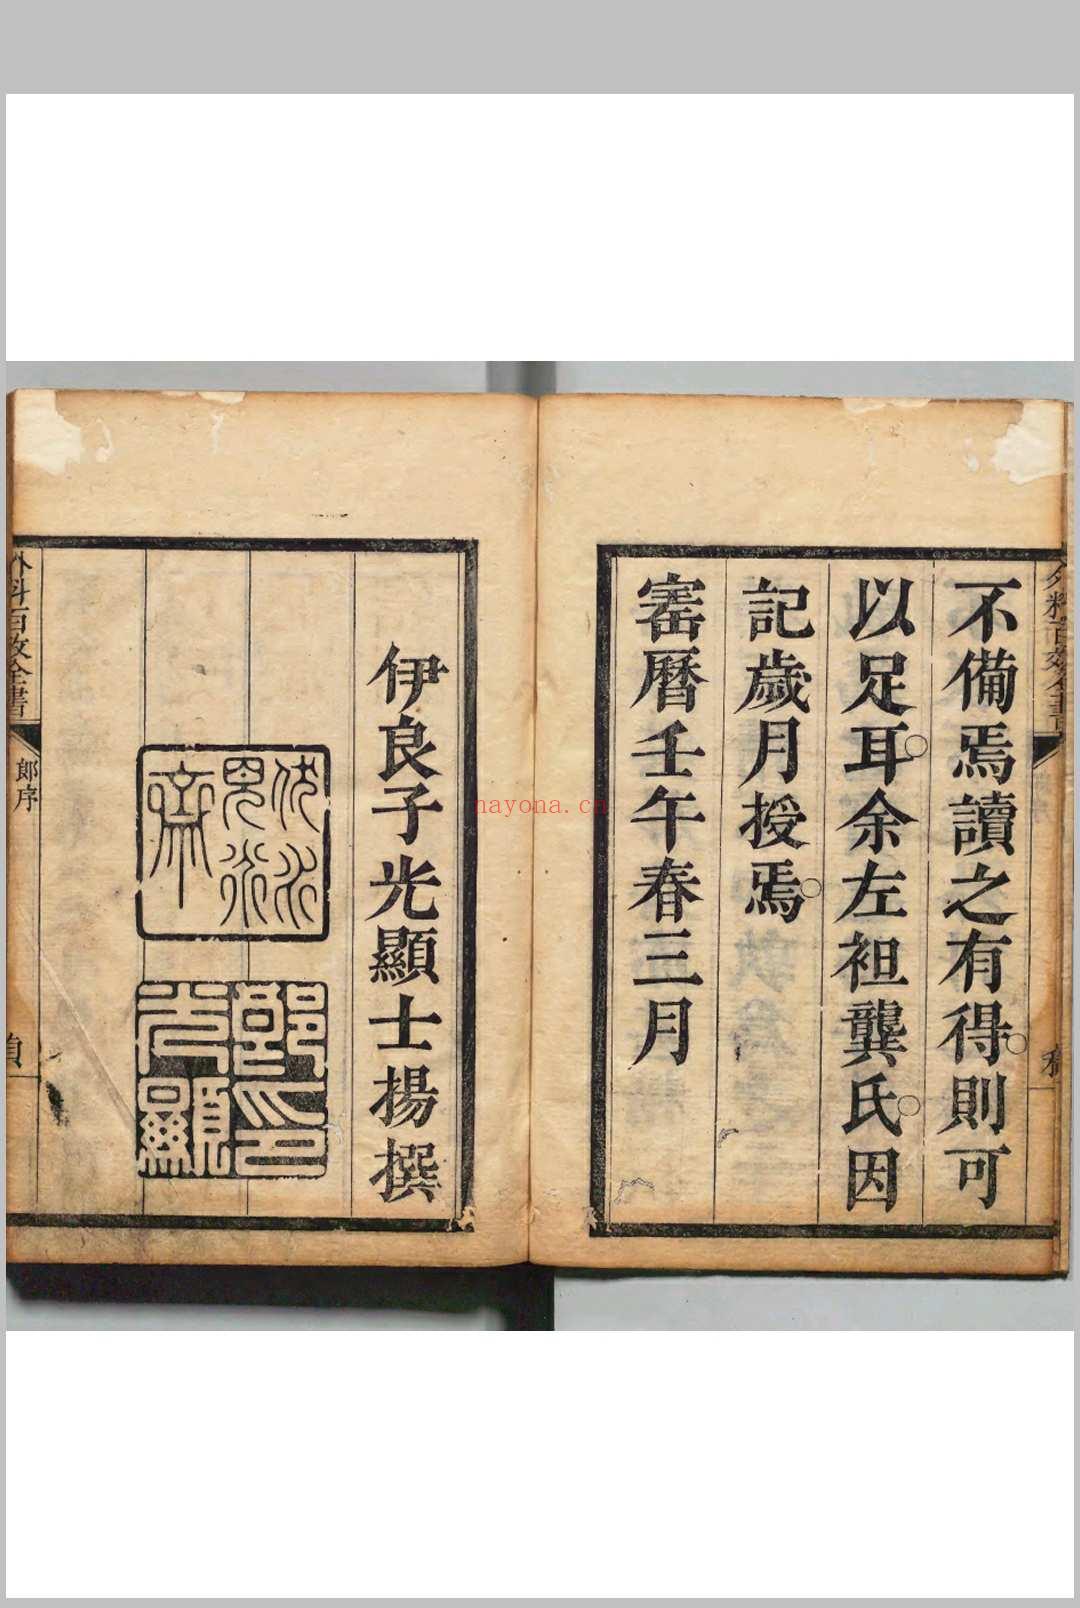 不備焉讀之有得則可
以足耳余左袒龔氏因
記歲月授焉
寳曆壬午春三月
伊良子光顯士揚撰
郎印
光顯
外科百效全書
郎序
nayona.cn